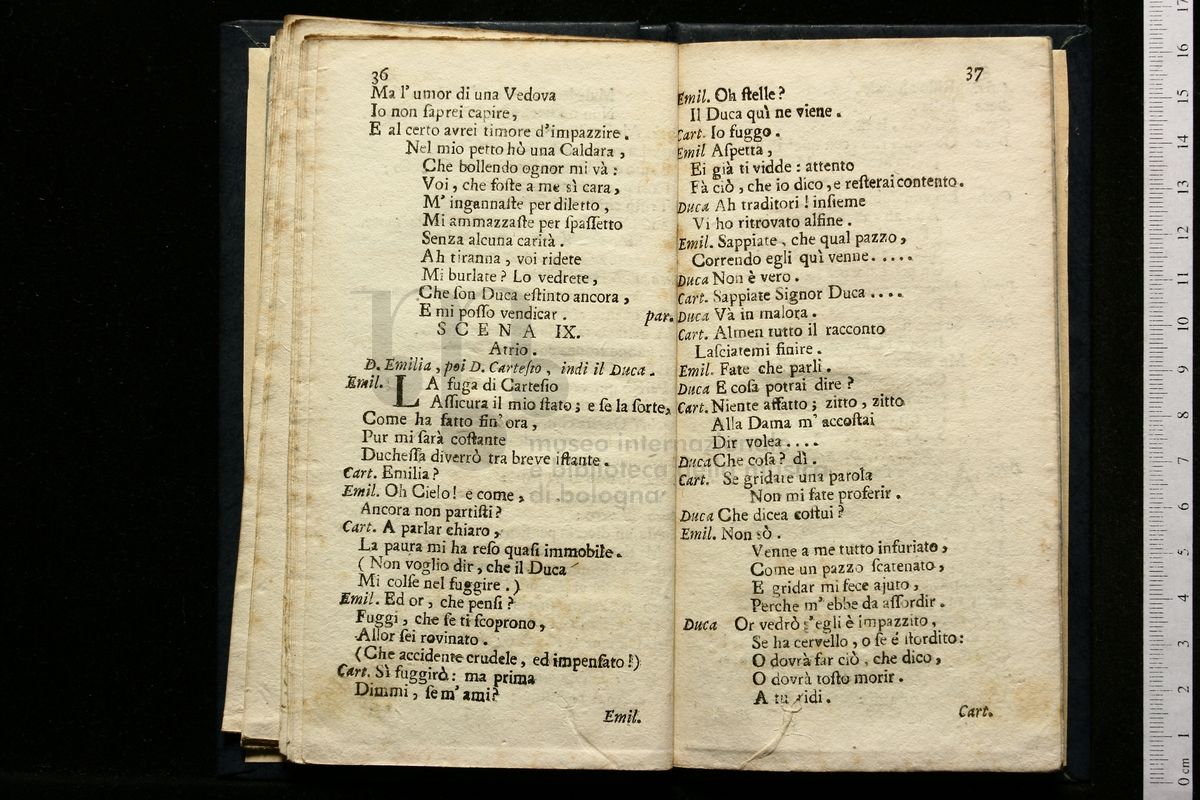 36
Ma l'umor di una Vedova
Io non ſaprei capire,
E al certo avrei timore d'impazzire.
Nel mio petto hò una Caldara,
Che bollendo ognor mi và:
Voi, che foſte a me sì cara,
M' ingannaſte per diletto,
Mi ammazzaſte per ſpaſſetto
Senza alcuna carità.
Ah tiranna, voi ridete
Mi burlate? Lo vedrete,
Che ſon Duca eſtinto ancora,
E mi poſſo vendicar. par.
SCENA IX.
Atrio.
D. Emilia, poi D. Carteſio, indi il Duca.
Emil. LA fuga di Carteſio
Aſſicura il mio ſtato; e ſe la ſorte,
Come ha fatto fin'ora,
Pur mi ſarà coſtante
Ducheſſa diverrò tra breve iſtante.
Cart. Emilia?
Emil. Oh Cielo! e come,
Ancora non partiſti?
Cart. A parlar chiaro,
La paura mi ha reſo quaſi immobile.
(Non voglio dir, che il Duca
Mi colſe nel fuggire.)
Emil. Ed or, che penſi?
Fuggi, che ſe ti ſcoprono,
Allor ſei rovinato.
(Che accidente crudele, ed impenſato!)
Cart. Sì fuggirò: ma prima
Dimmi, ſe m'ami?
Emil.
37
Emil. Oh ſtelle?
Il Duca quì ne viene.
Cart. Io fuggo.
Emil Aſpetta,
Ei già ti vidde: attento
Fà ciò, che io dico, e reſterai contento.
Duca Ah traditori! inſieme
Vi ho ritrovato alfine.
Emil. Sappiate, che qual pazzo,
Correndo egli quì venne.....
Duca Non è vero.
Cart. Sappiate Signor Duca....
Duca Và in malora.
Cart. Almen tutto il racconto
Laſciatemi finire.
Emil. Fate che parli.
Duca E coſa potrai dire?
Cart. Niente affatto; zitto, zitto
Alla Dama m' accoſtai
Dir volea....
Duca Che coſa? dì.
Cart. Se gridate una parola
Non mi fate proferir.
Duca Che dicea coſtui?
Emil. Non sò.
Venne a me tutto infuriato,
Come un pazzo ſcatenato,
E gridar mi fece ajuto,
Perche m'ebbe da aſſordir.
Duca Or vedrò s'egli è impazzito,
Se ha cervello, o ſe é ſtordito:
O dovrà far ciò, che dico,
O dovrà toſto morir.
A tu ridi.
Cart.
museo internazionale
e biblioteca della musica
di bologna